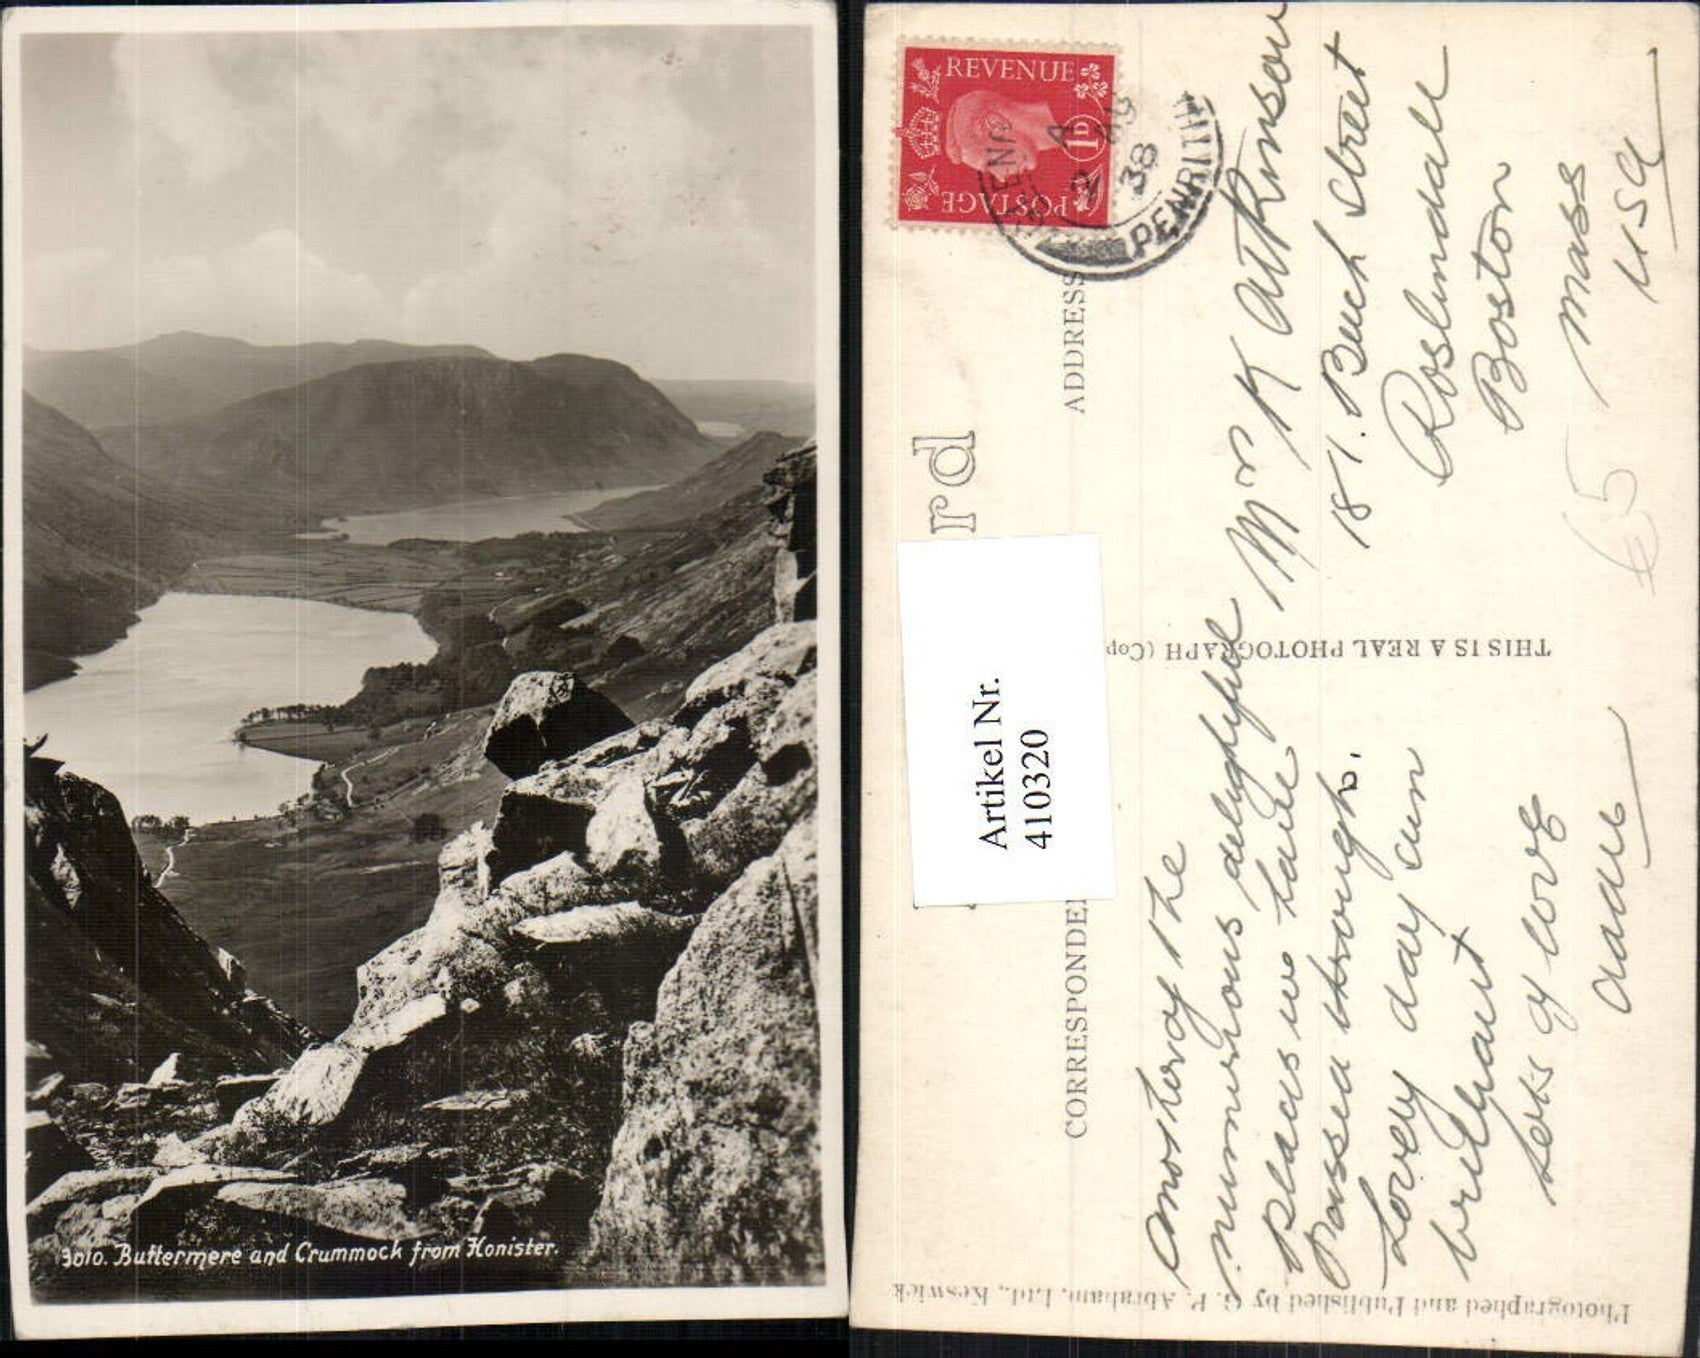 3010. Buttermere and Crummock from Honister.
REVENUE
1D
POSTAGE
PENRITH
2 AU
38
rd
CORRESPONDE
ADDRESS
Artikel Nr.
410320
THIS IS A REAL PHOTOGRAPH (Cop
Photographed and Published by G. P. Abraham, Ltd., Keswick
Another of the
numerous delightful
places we have
Passed through.
Lovely day sun
brilliant
Lots of love
Mrs K Atkinson
181. Beech Street
Roslindale
Boston
Mass
USA
65